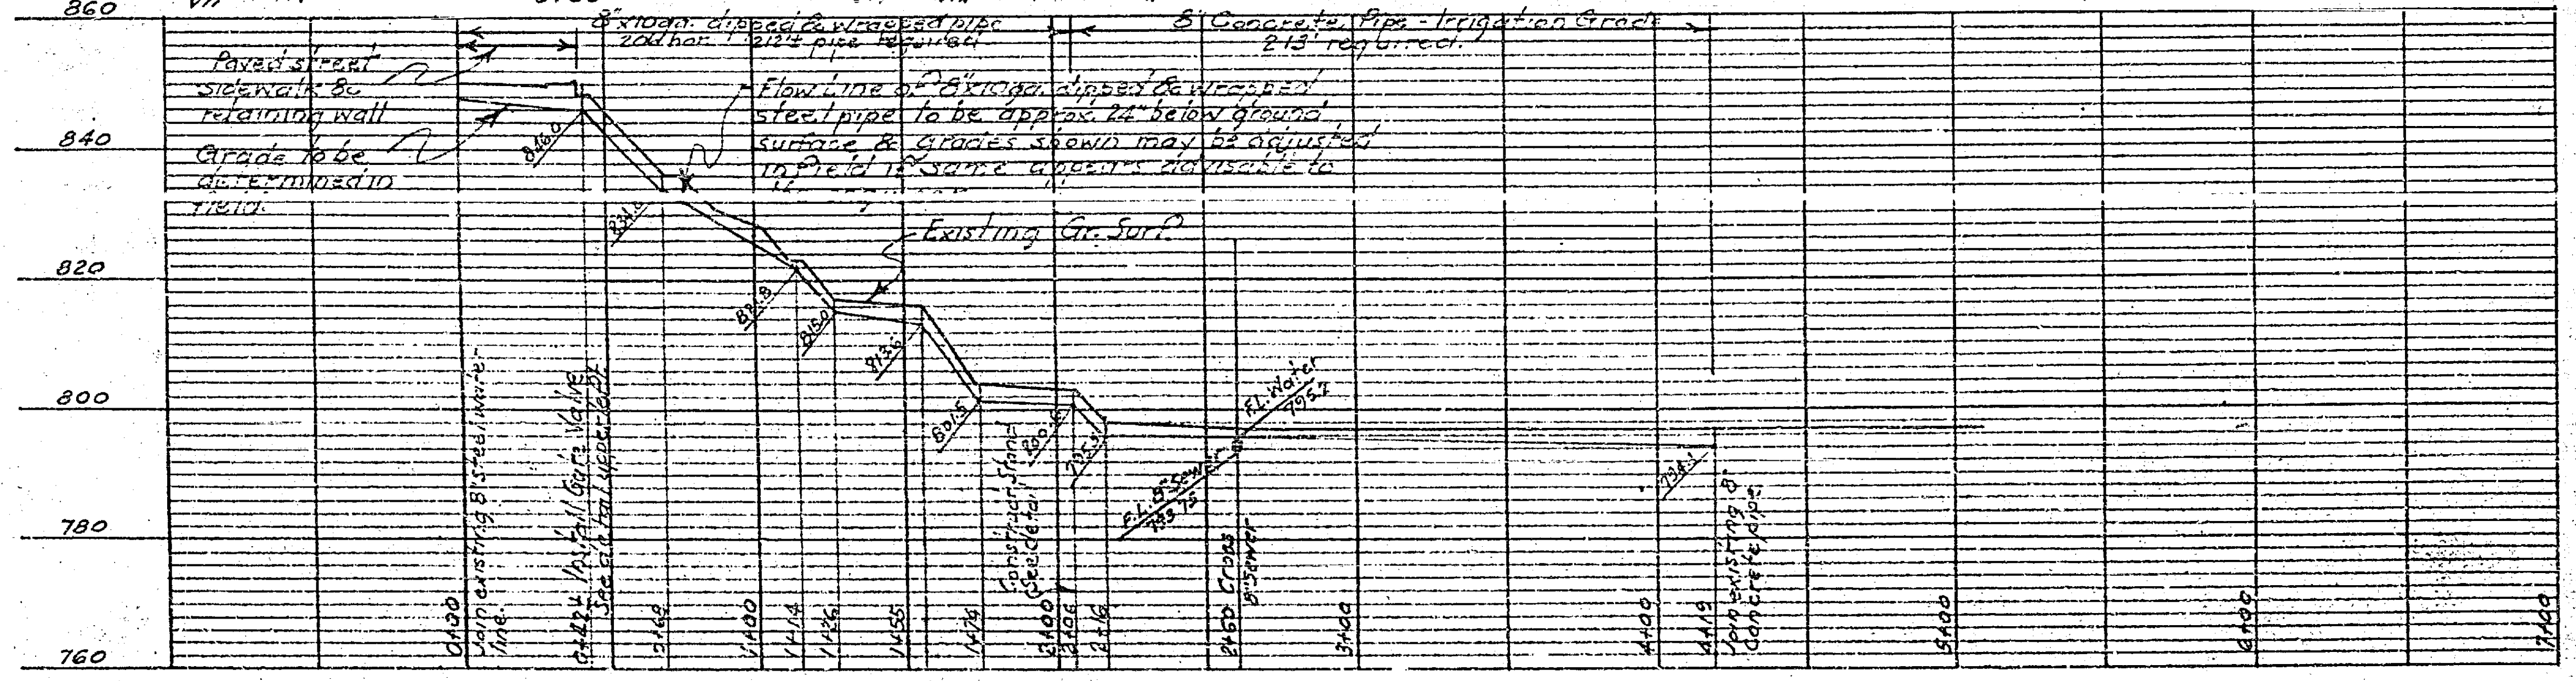 860
8"x10ga. dipped & wrapped pipe
212'± pipe required
8" Concrete Pipe - Irrigation Grade
213' required.
Paved street
sidewalk &
retaining wall
Grade to be
determined in
field.
Flow Line of 8"x10ga. dipped & wrapped
steel pipe to be approx. 24" below ground
surface & grades shown may be adjusted
in field if same appears advisable to
840
846.0
Existing Gr. Surf.
820
821.8
815.0
813.6
800
801.5
795.5
F.L. Water
795.2
F.L. 8" Sewer
793.75
794.1
780
760
0+00
Join existing 8" steel water
line.
Install Gate Valve
See detail upper left
0+68
1+00
1+14
1+26
1+55
1+74
Construct Stand
(See detail)
2+00
2+06
2+16
2+60 Cross
8" Sewer
3+00
4+00
4+19
Join existing 8"
Concrete pipe.
5+00
6+00
7+00